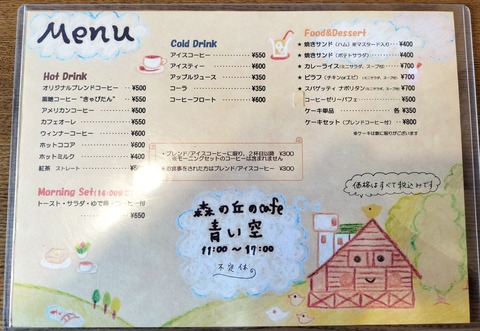 Menu
Hot Drink
オリジナルブレンドコーヒー ¥500
薬膳コーヒー "きゅぴたん" ¥550
アメリカンコーヒー ¥500
カフェオーレ ¥550
ウィンナーコーヒー ¥600
ホットココア ¥600
ホットミルク ¥400
紅茶 ストレート
Morning Set
トースト・サラダ・ゆで卵・コーヒー付
¥650
Cold Drink
アイスコーヒー ¥550
アイスティー ¥600
アップルジュース ¥350
コーラ ¥350
コーヒーフロート ¥600
Food&Dessert
★ 焼きサンド (ハム) ※マスタード入り ¥400
★ 焼きサンド (ポテトサラダ) ¥400
★ カレーライス(ミニサラダ、スープ付) ¥700
★ ピラフ (チキンorエビ) (ミニサラダ、スープ付) ¥700
★ スパゲッティ ナポリタン(ミニサラダ、スープ付) ¥700
コーヒーゼリーパフェ ¥500
ケーキ単品 各 ¥350
ケーキセット(ブレンドコーヒー付) ¥800
※ケーキは数に限りがございます
・ブレンド/アイスコーヒーに限り、2杯目以降 ¥300
※モーニングセットのコーヒーは含まれません
★お食事をされた方はブレンド/アイスコーヒー ¥300
価格はすべて税込みです
森の丘のcafe
青い空
11:00 〜 17:00
不定休